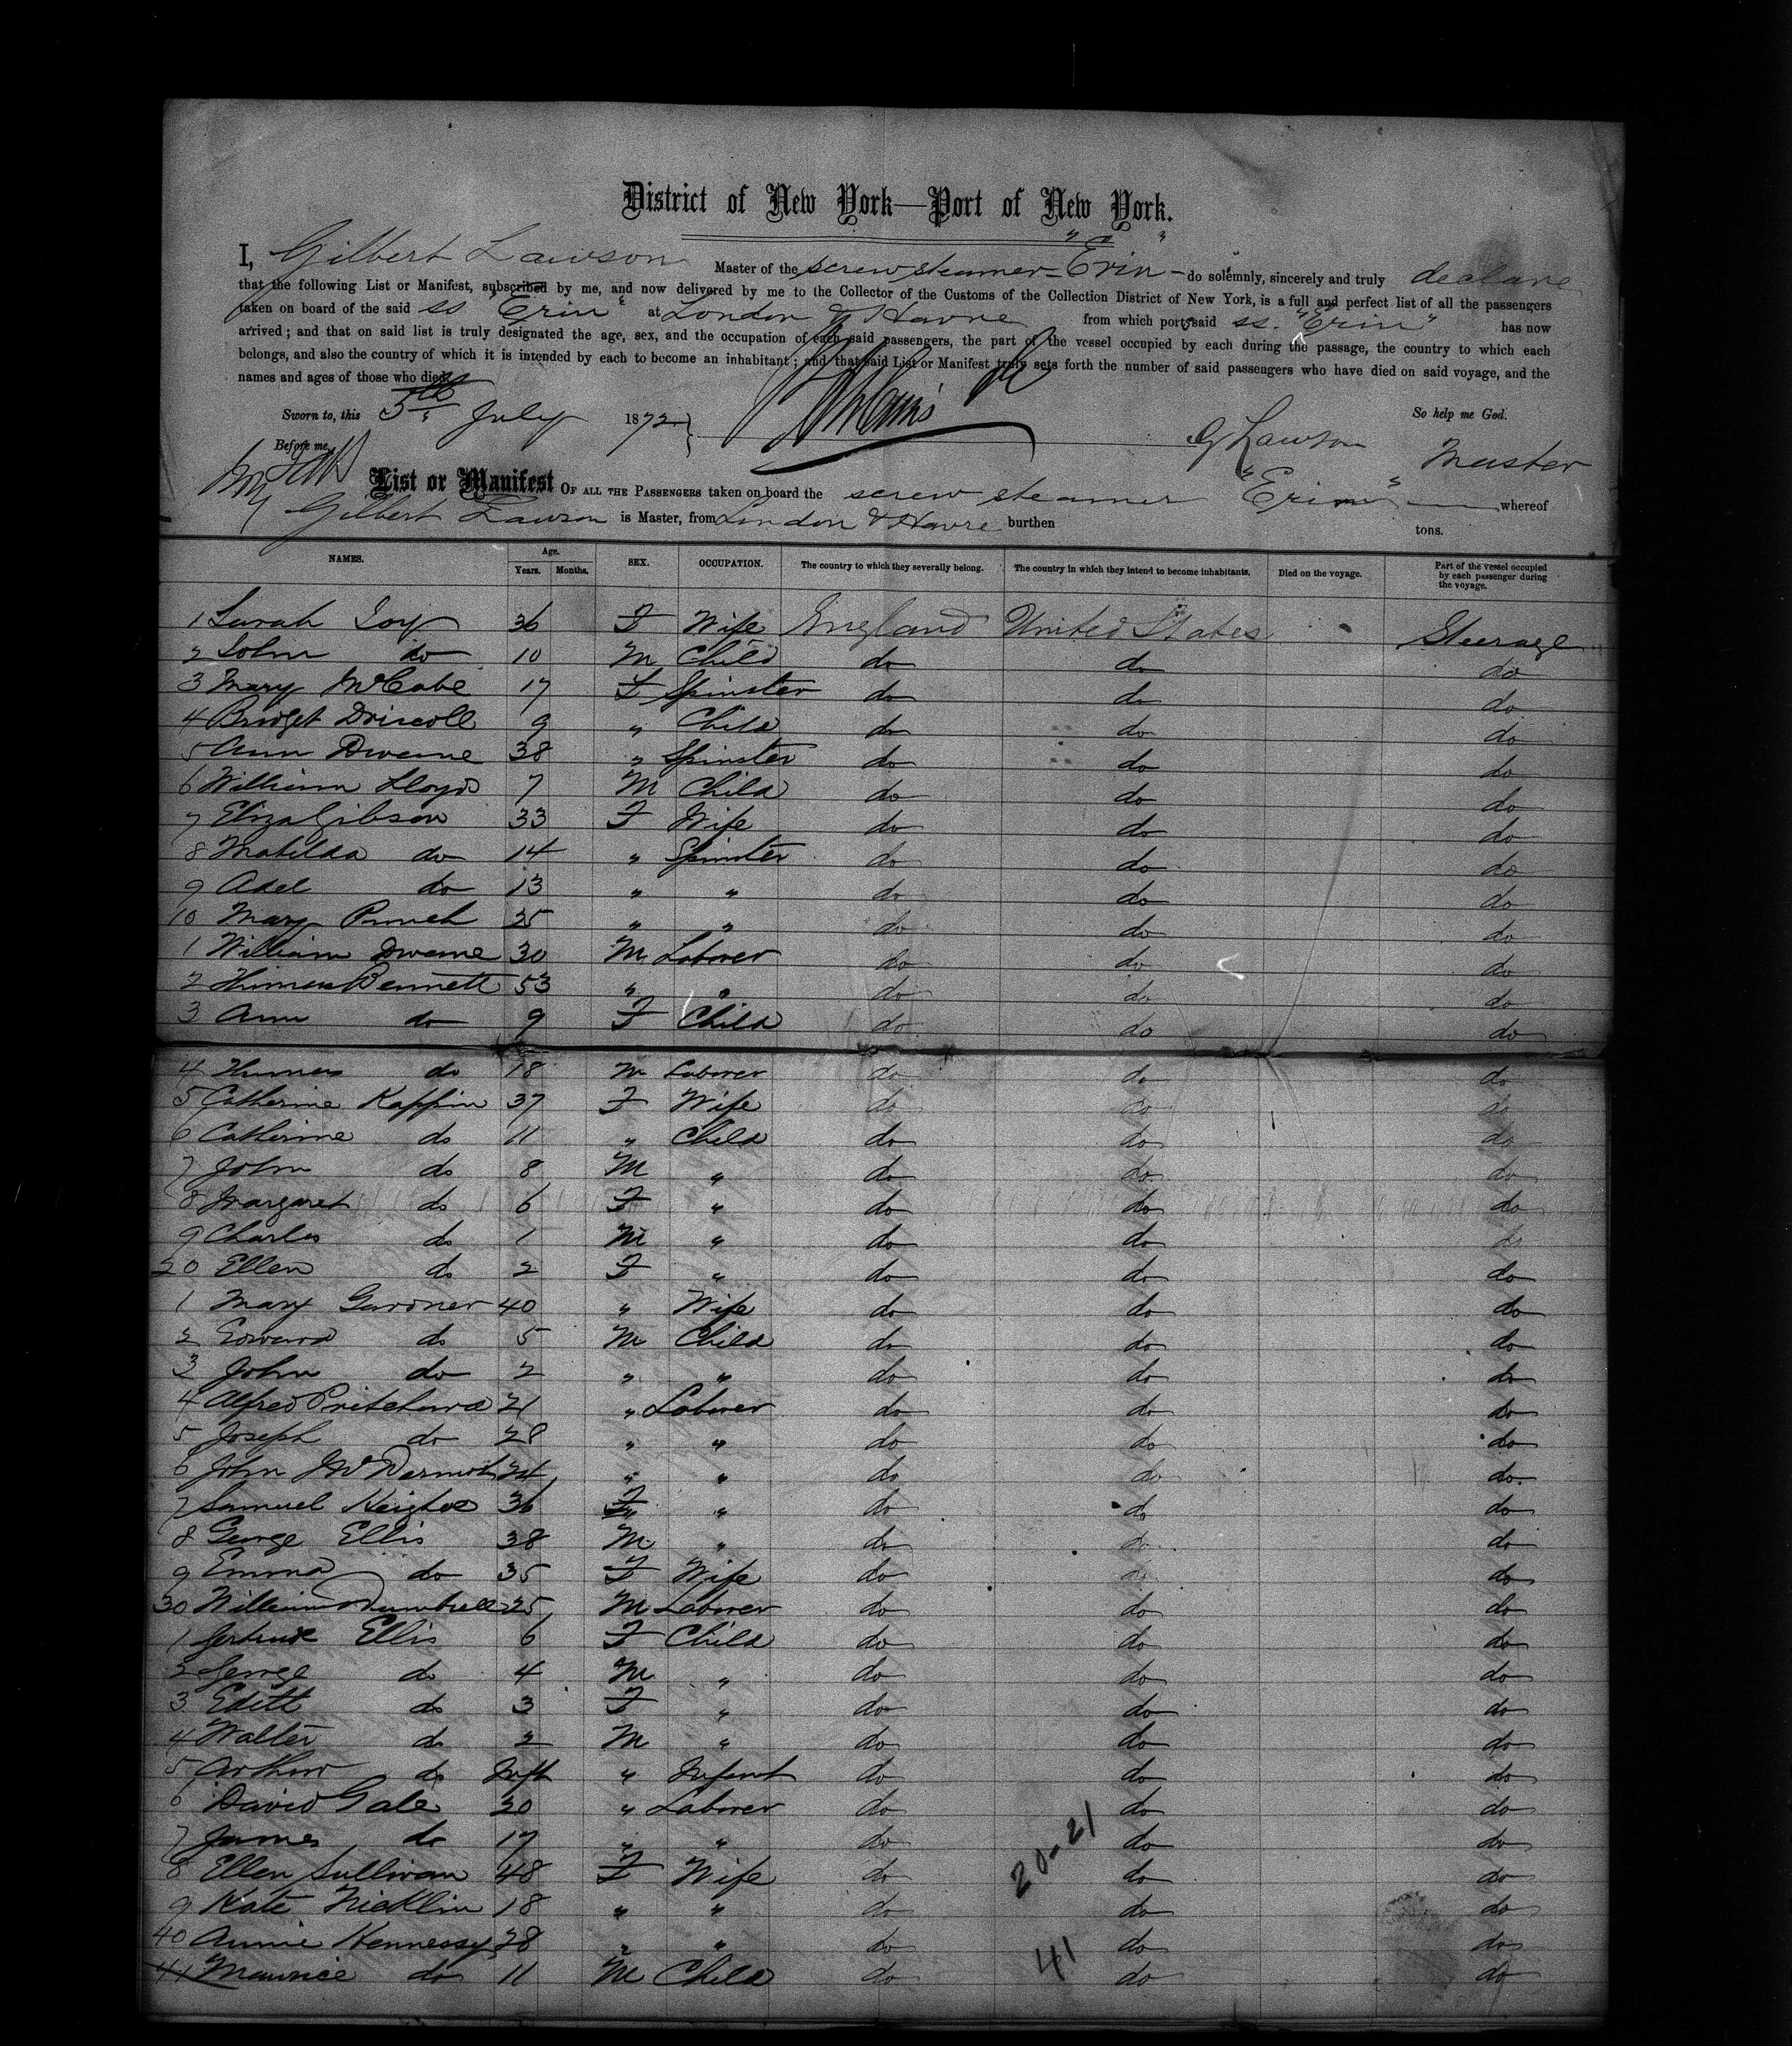 District of New York—Port of New York.
I, Gilbert Lawson Master of the screw steamer "Erin" do solemnly, sincerely and truly declare
that the following List or Manifest, subscribed by me, and now delivered by me to the Collector of the Customs of the Collection District of New York, is a full and perfect list of all the passengers
taken on board of the said ss "Erin" at London & Havre from which port said ss. "Erin" has now
arrived; and that on said list is truly designated the age, sex, and the occupation of each said passengers, the part of the vessel occupied by each during the passage, the country to which each
belongs, and also the country of which it is intended by each to become an inhabitant; and that said List or Manifest truly sets forth the number of said passengers who have died on said voyage, and the
names and ages of those who died.
Sworn to, this 5th July 1872 So help me God.
Before me, G Lawson Master
List or Manifest OF ALL THE PASSENGERS taken on board the screw steamer "Erin" whereof
Gilbert Lawson is Master, from London & Havre burthen tons.
NAMES. Age. Years. Months. SEX. OCCUPATION. The country to which they severally belong. The country in which they intend to become inhabitants. Died on the voyage. Part of the vessel occupied by each passenger during the voyage.
1 Sarah Joy 36 F Wife England United States Steerage
2 John do 10 M Child do do do
3 Mary McCabe 17 F Spinster do do do
4 Bridget Driscoll 9 " Child do do do
5 Ann Dweane 38 " Spinster do do do
6 William Lloyd 7 M Child do do do
7 Eliza Gibson 33 F Wife do do do
8 Matilda do 14 " Spinster do do do
9 Adel do 13 " " do do do
10 Mary 25 " " do do do
1 William Dweane 30 M Laborer do do do
2 Thomas Bennett 53 " " do do do
3 Ann do 9 F Child do do do
4 Thomas do 18 M Laborer do do do
5 Catherine Kappin 37 F Wife do do do
6 Catherine do 11 " Child do do do
7 John do 8 M " do do do
8 Margaret do 6 F " do do do
9 Charles do 1 M " do do do
20 Ellen do 2 F " do do do
1 Mary Gardner 40 " Wife do do do
2 Edward do 5 M Child do do do
3 John do 2 " " do do do
4 Alfred Pritchard 21 " Laborer do do do
5 Joseph do 28 " " do do do
6 John McDermot 24 " " do do do
7 Samuel 36 F " do do do
8 George Ellis 38 M " do do do
9 Emma do 35 F Wife do do do
30 William Dumbrell 25 M Laborer do do do
1 Gertrude Ellis 6 F Child do do do
2 George do 4 M " do do do
3 Edith do 3 F " do do do
4 Walter do 2 M " do do do
5 Arthur do Inft " Infant do do do
6 David Gale 20 " Laborer do do do
7 James do 17 " " do do do
8 Ellen Sullivan 48 F Wife do do do
9 Kate Nicklin 18 " " do do do
40 Annie Kennessy 28 " " do do do
41 Maurice do 11 M Child do do do
20-21
41